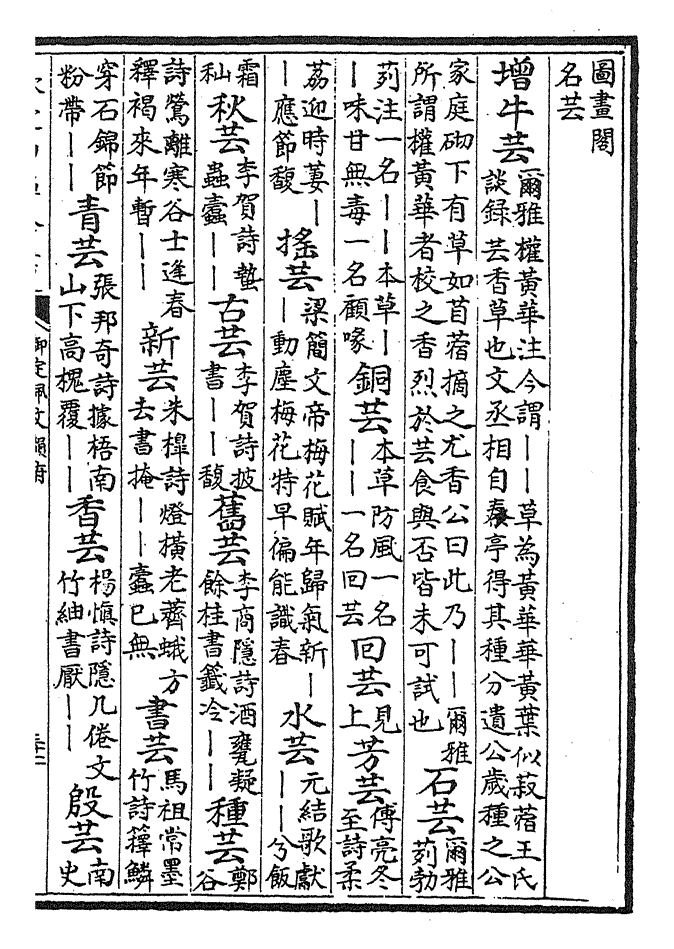 圖畫閣
名芸
增牛芸
爾雅權黃華注今謂丨丨草為黃華華黃葉似菽蓿王氏
談録芸香草也文丞相自秦亭得其種分遺公歲種之公
家庭砌下有草如苜蓿摘之尤香公曰此乃丨丨爾雅
所謂權黃華者校之香烈於芸食與否皆未可試也
石芸
爾雅
茢勃
茢注一名丨丨本草丨
丨味甘無毒一名顧喙
銅芸
本草防風一名
丨丨一名回芸
回芸
見
上
芳芸
傅亮冬
至詩柔
荔迎時萋丨
丨應節馥
搖芸
梁簡文帝梅花賦年歸氣新丨
丨動塵梅花特早偏能識春
水芸
元結歌獻
丨丨兮飯
霜
秈
秋芸
李賀詩蟄
蟲蠹丨丨
古芸
李賀詩披
書丨丨馥
舊芸
李商隱詩酒甕凝
餘桂書籤冷丨丨
種芸
鄭
谷
詩鶯離寒谷士逢春
釋褐來年暫丨丨
新芸
米楻詩燈橫老薺蛾方
去書掩丨丨蠹已無
書芸
馬祖常墨
竹詩籜鱗
穿石錦節
粉帶丨丨
青芸
張邦奇詩據梧南
山下高槐覆丨丨
香芸
楊慎詩隱几倦文
竹紬書厭丨丨
殷芸
南
史
御定佩文韻府